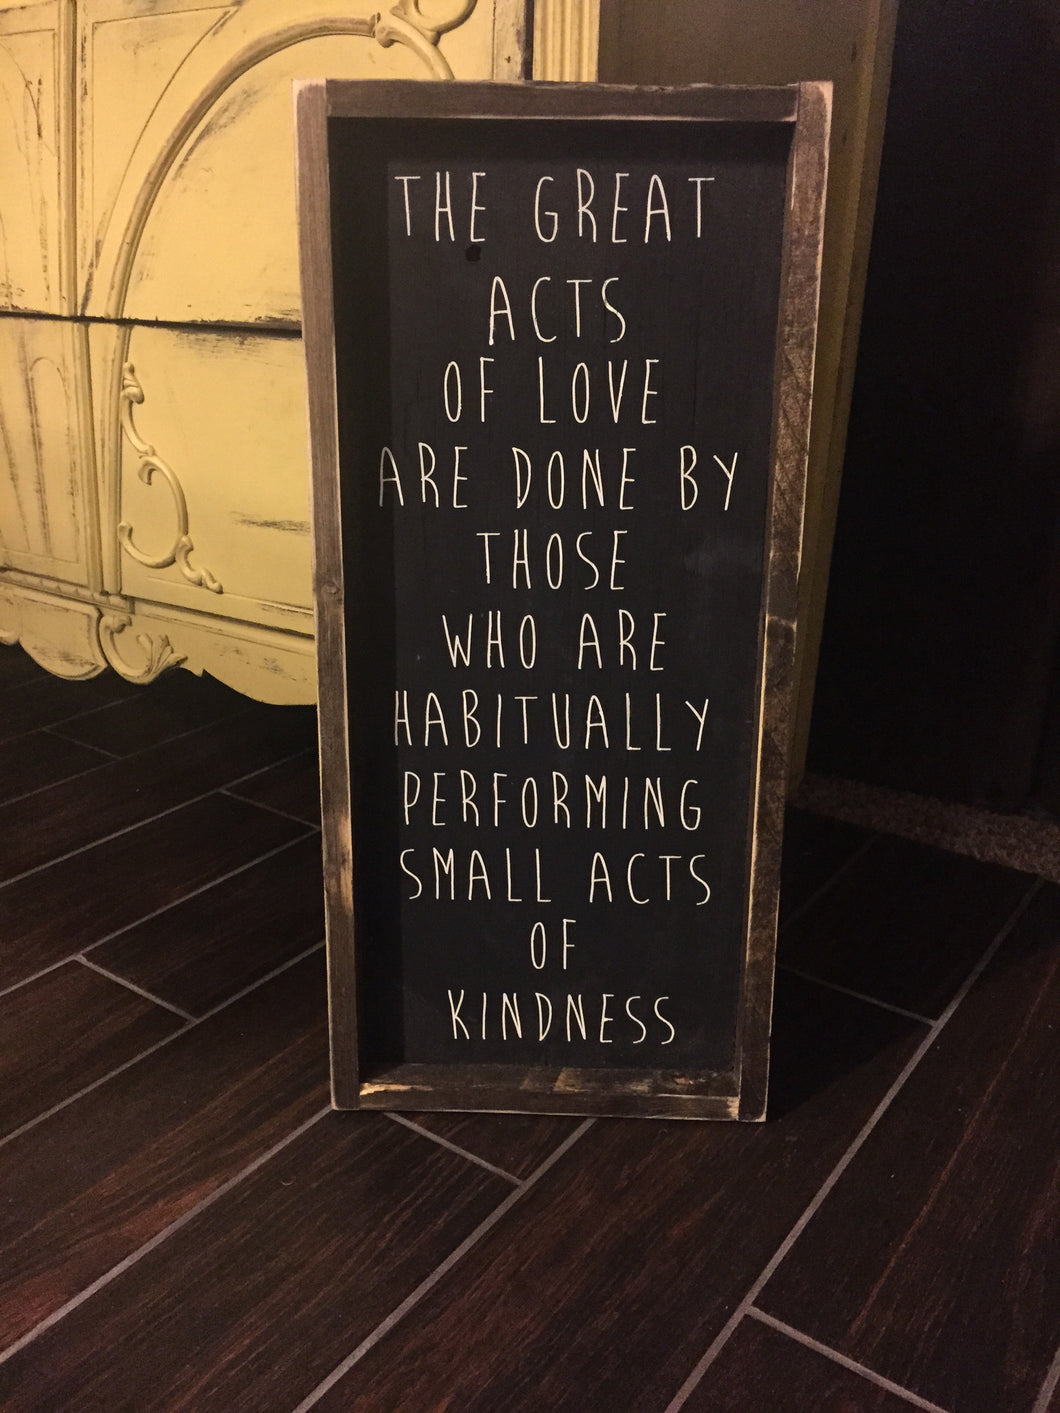 THE GREAT
ACTS
OF LOVE
ARE DONE BY
THOSE
WHO ARE
HABITUALLY
PERFORMING
SMALL ACTS
OF
KINDNESS